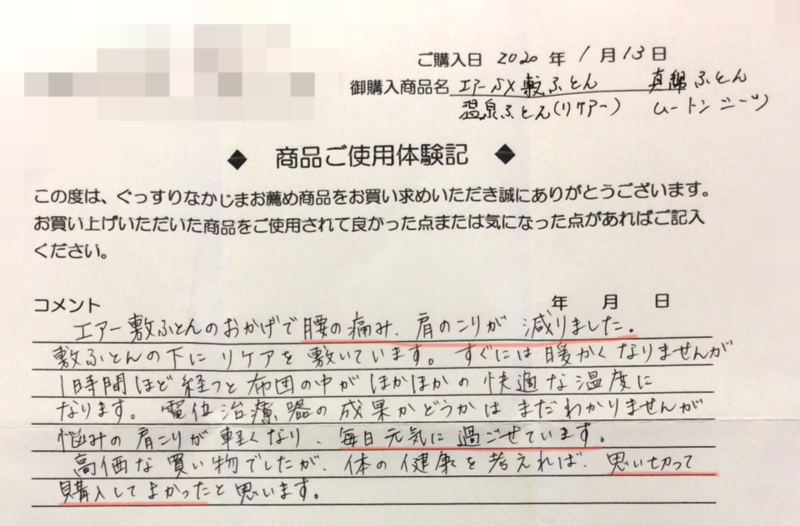 ご購入日 2020 年 1 月 13 日
御購入商品名 エアーSX敷ふとん 真綿ふとん
温泉ふとん(リケアー) ムートンシーツ
◆ 商品ご使用体験記 ◆
この度は、ぐっすりなかじまお薦め商品をお買い求めいただき誠にありがとうございます。
お買い上げいただいた商品をご使用されて良かった点または気になった点があればご記入
ください。
コメント 年 月 日
エアー敷ふとんのおかげで腰の痛み、肩のこりが 減りました。
敷ふとんの下に リケアを敷いています。すぐには暖かくなりませんが
1時間ほど経つと布団の中がほかほかの快適な温度に
なります。電位治療器の成果かどうかは まだわかりませんが
悩みの肩こりが軽くなり、毎日元気に過ごせています。
高価な買い物でしたが、体の健康を考えれば、思い切って
購入してよかったと思います。